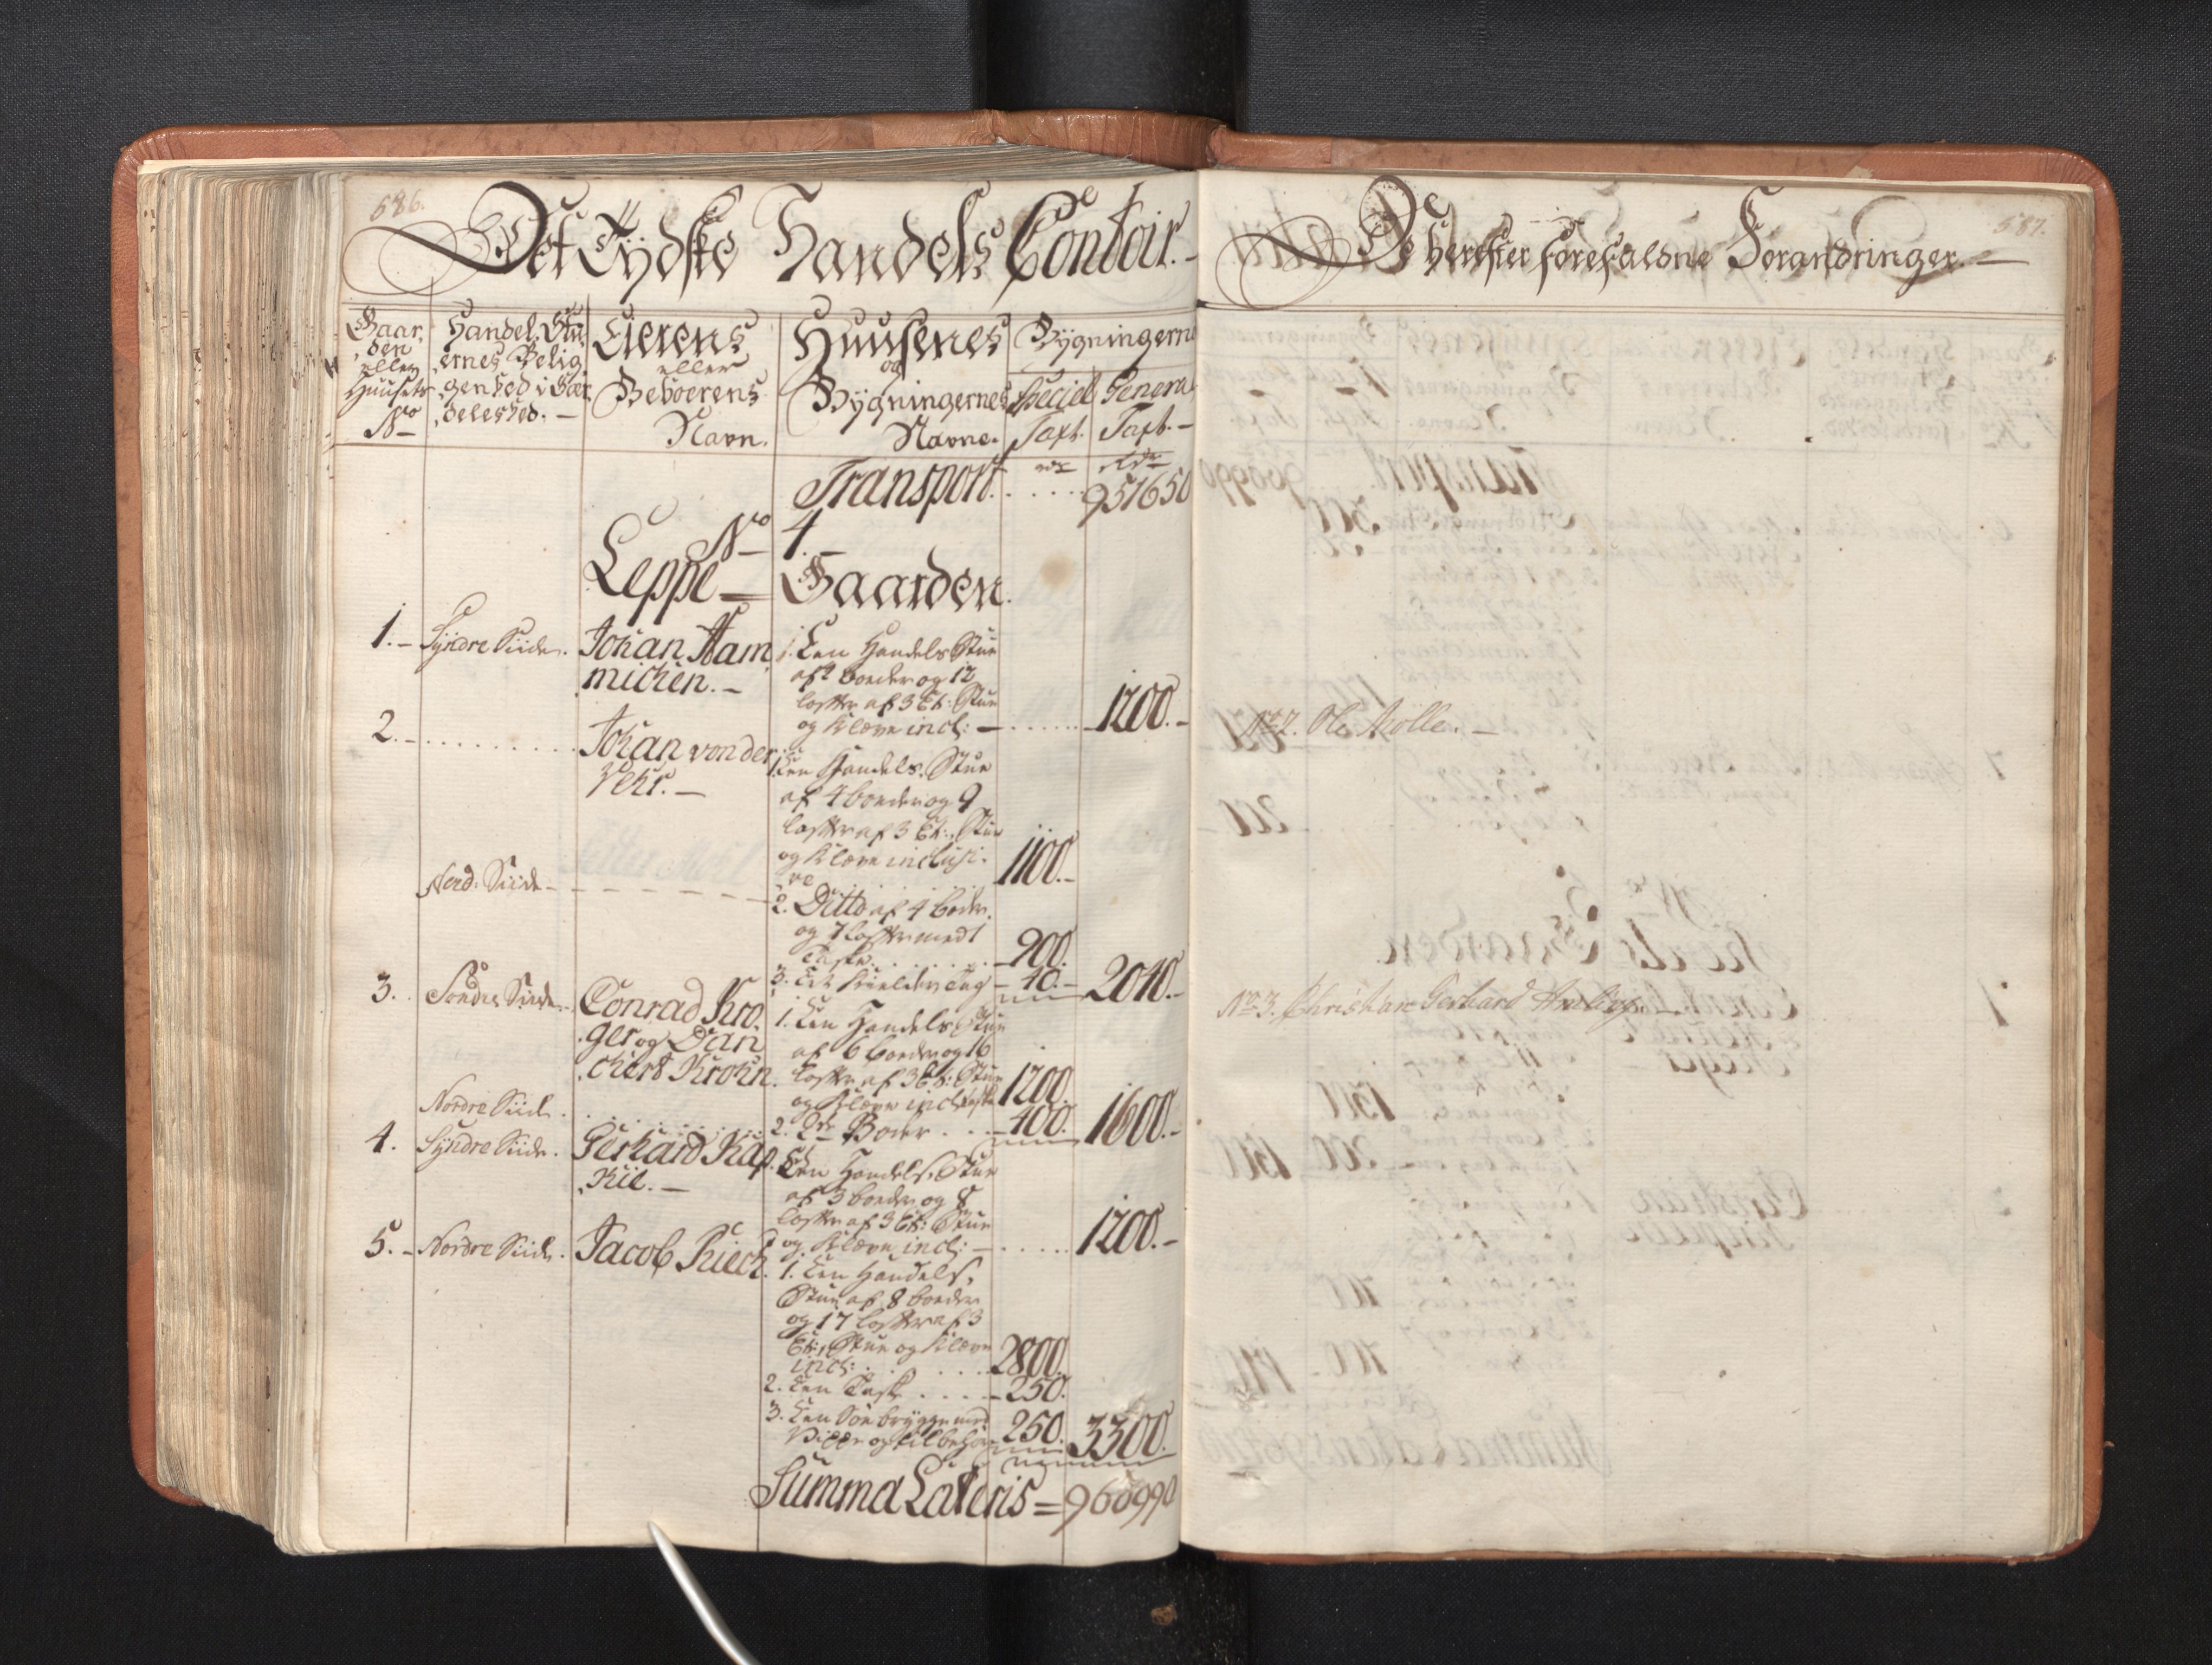 586.
Det Tydske Handels Contoir.-
Gaar,
,den
eller
Huusets
No
Handel, Stu,
,ernes Belig,
,genhed i Gær,
,deleshed. -
Eierens
eller
Beboerens
Navn.
Huusenes
og
Bygningernes
Navne.
Bygningerne
Speciel
Taxt.
General
Taxt. -
rdr
Rdr
Transport. . . . . 951650
No 4.
Leppe = Gaarden.
1. - Syndre Siide. Johan Ham,
,michen. -
1. Een Handels Stue
af 2 boeder og 12
lofter af 3 Et: Stue
og Klæve incl: - . . . . . 1200. -
2. - . . . . . . . . . Johan von der
Vehr. -
1. Een Handels, Stue
af 4 boeder og 9
lofter af 3 Et:, Stue
og Klæve inclusi,
,ve . . . . . . 1100. -
Nord: Siide - - - - - - - -
2. Ditto af 4 boder
og 7 lofter med 1
Taske . . . . . . - 900.
3. Et Kielder Tag - 40. - 2040. -
3. Søndre Siide. Conrad Kro,
,ger og Dan
,chert Krohn.
1. Een Handels Stue
af 6 boeder og 16
lofter af 3 Et: Stue
og Klæve incl: 1200.
Nordre Siide . . . . . . .
2. De Boder . . . - 400. 1600. -
4. Syndre Siide. Gerhard Kap,
,Kil. -
Een Handels, Stue
af 3 boeder og 8
lofter af 3 Et: Stue
og Klæve incl: - . . . . . 1200. -
5. - Nordre Siide. Jacob Riech.
1. Een Handels,
Stue af 8 boeder
og 17 lofter af 3
Et:, Stue og Klæve
incl: . . . . . . 2800.
2. Een Taske . . . . - 250.
3. Een Søe brygge med
og tilbehør 250. 3300.
Summa Lateris = 960990
587.
De herefter forefaldne Forandringer. -
No 2. Ole Mølle. -
No 3. Christian Gerhard